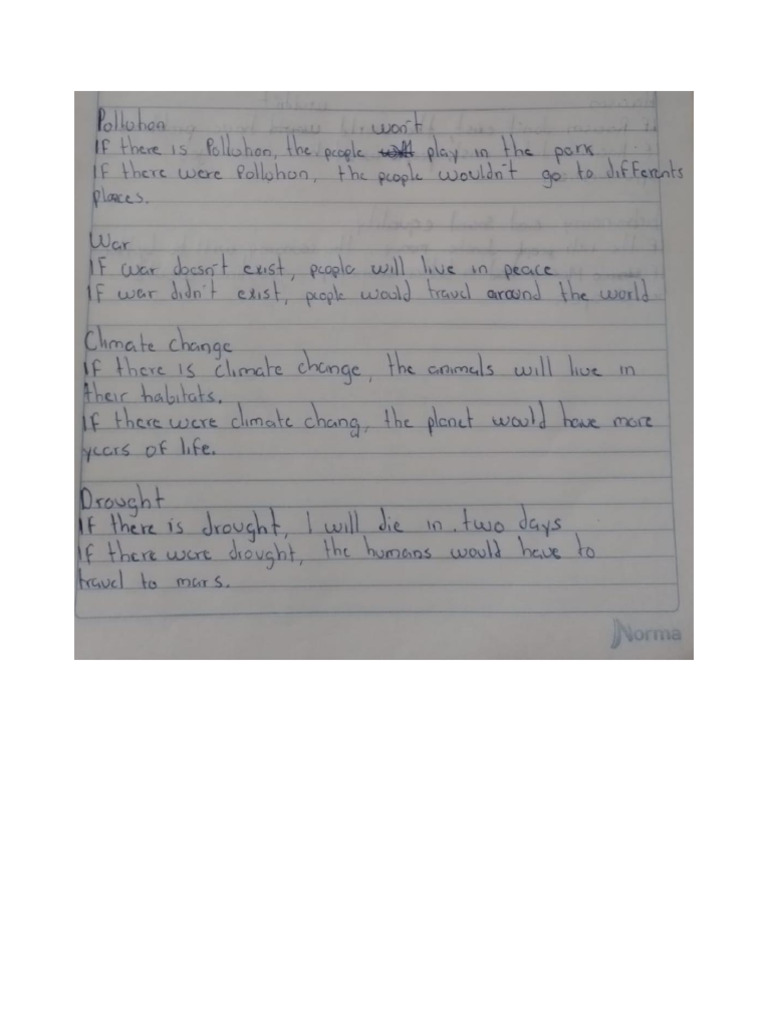 Pollution won't
If there is Pollution, the people will play in the park
If there were Pollution, the people wouldn't go to differents
places.
War
If war doesn't exist, people will live in peace
If war didn't exist, people would travel around the world
Climate change
If there is climate change, the animals will live in
their habitats.
If there were climate chang, the planet would have more
years of life.
Drought
If there is drought, I will die in two days
If there were drought, the humans would have to
travel to mars.
Norma